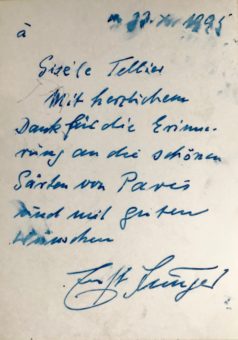 à
Gisèle Tellier
Mit herzlichem
Dank für die Erinne-
rung an die schönen
Gärten von Paris
und mit guten
Wünschen
Ernst Jünger